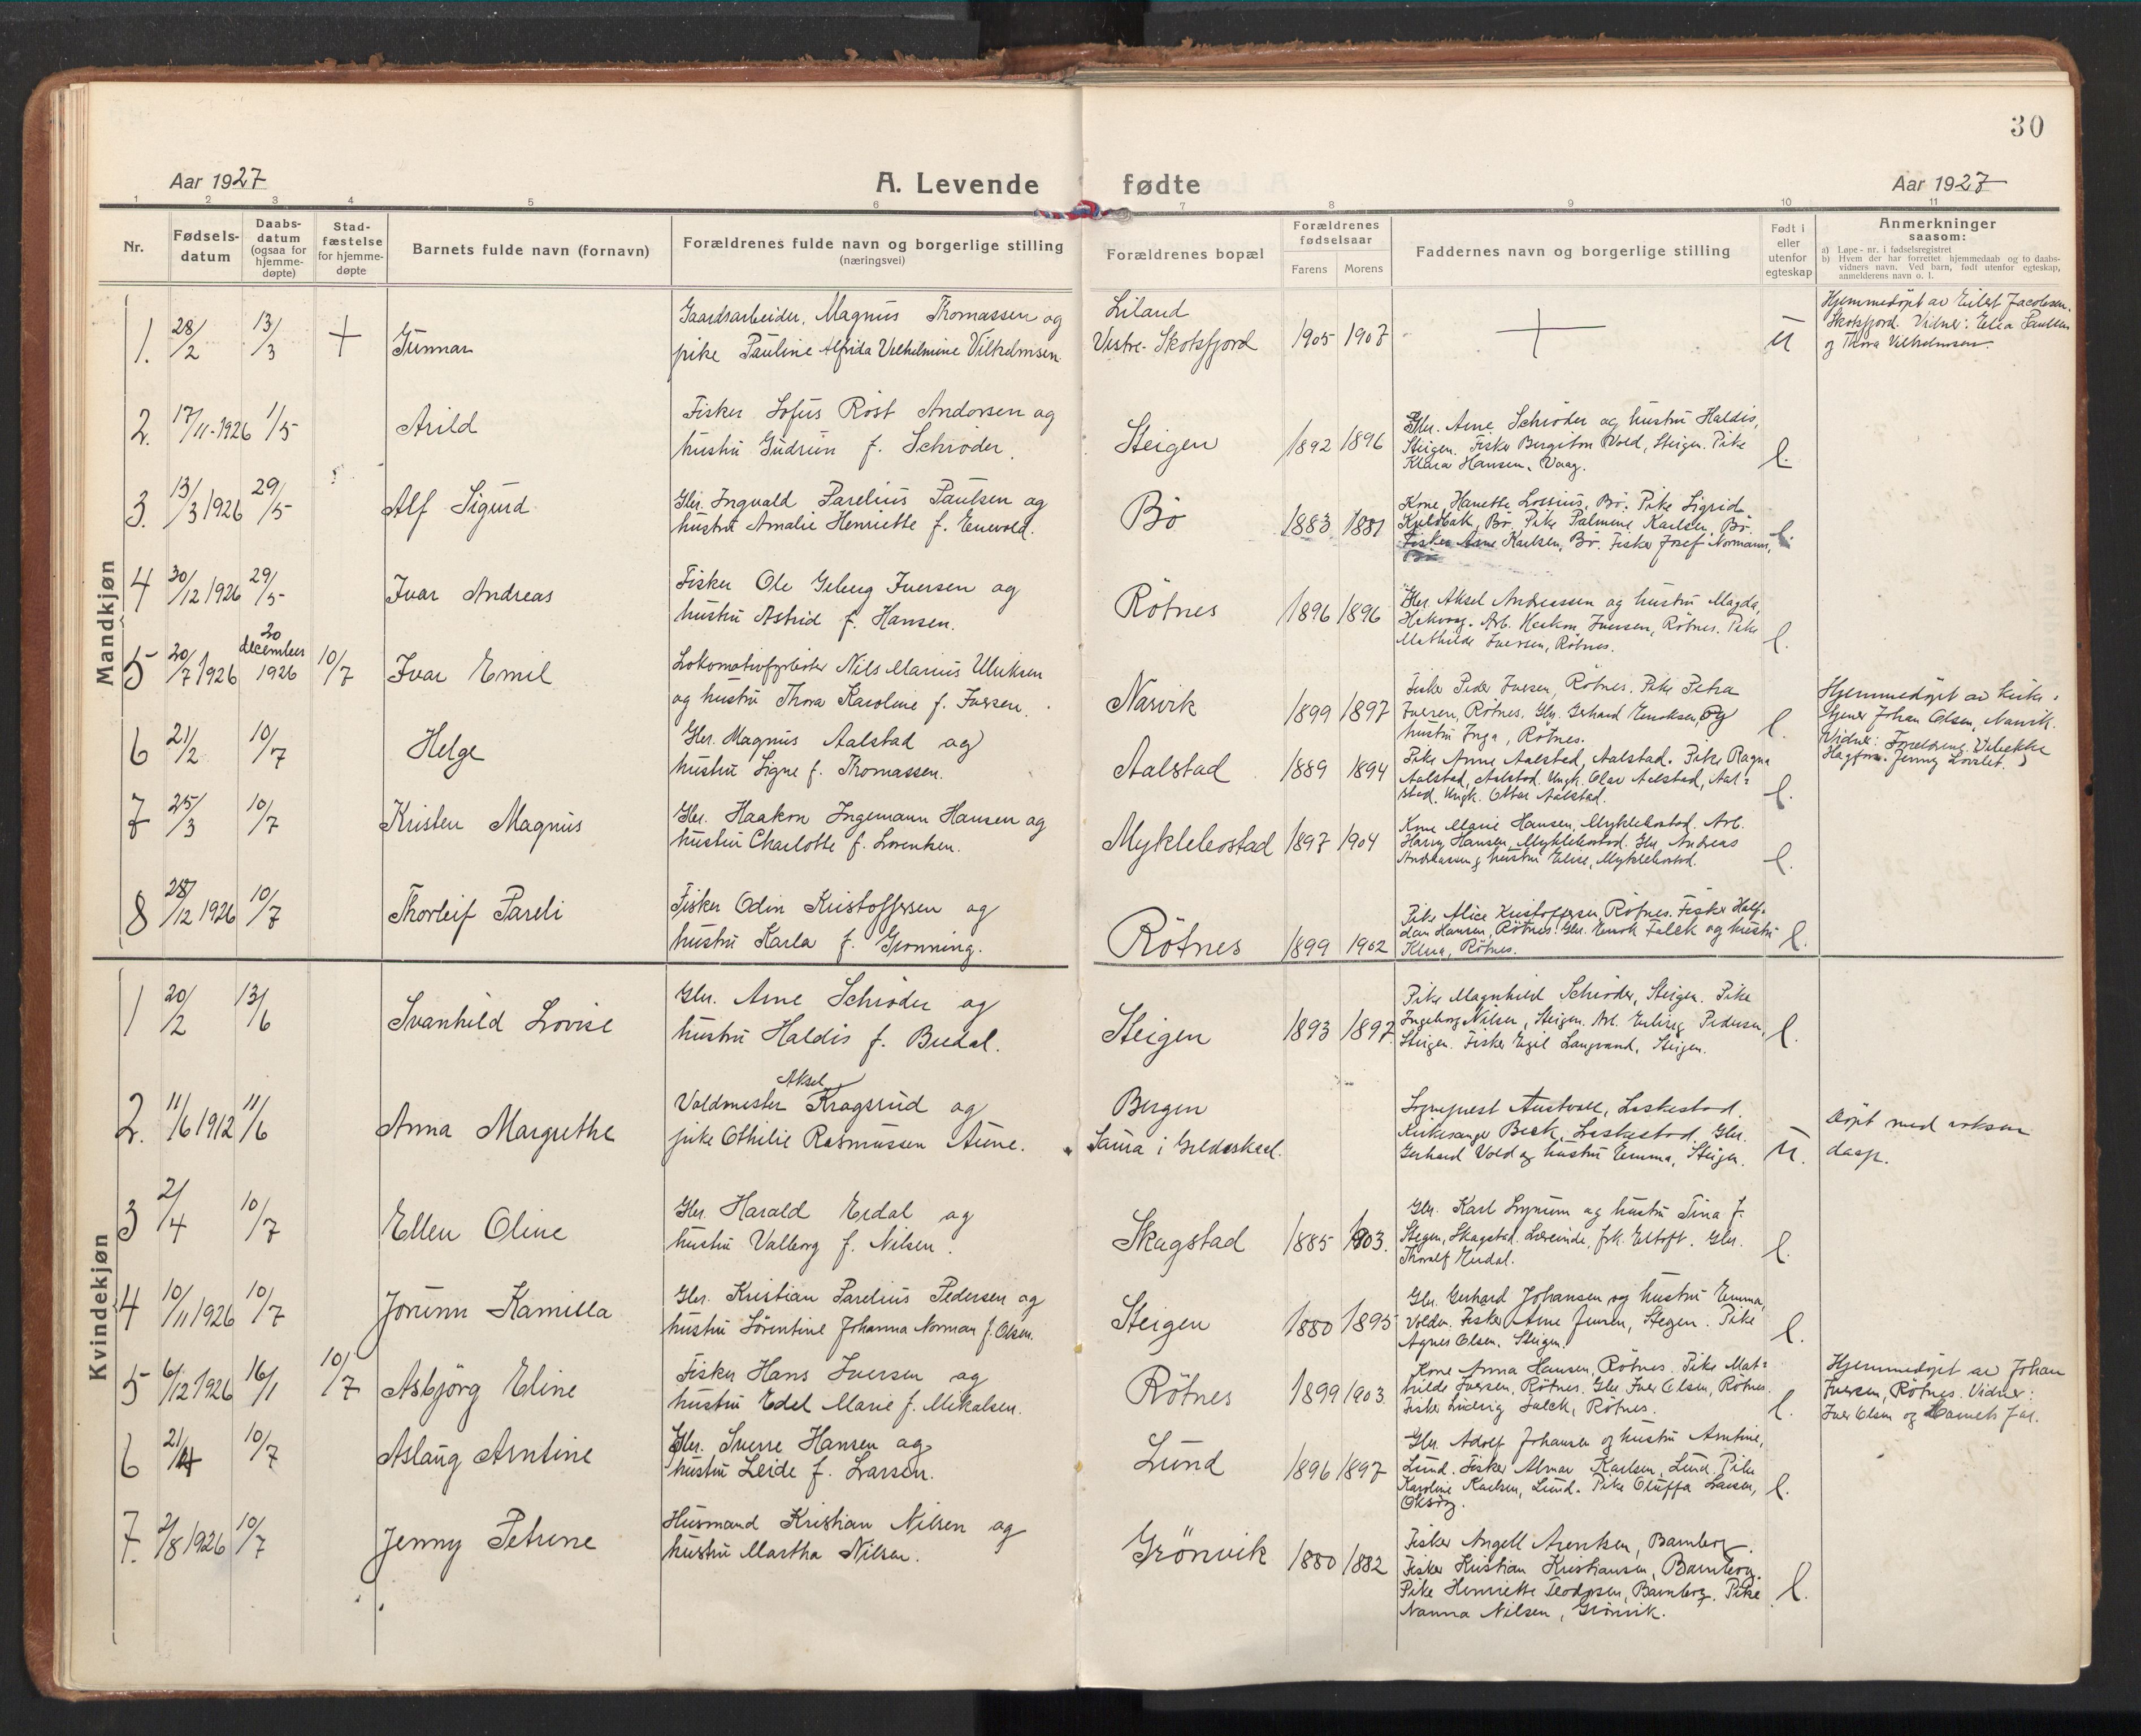 30
Aar 1927
A. Levende fødte
Aar 1927
1 2 3 4 5 6 7 8 9 10 11
Nr.
Fødsels-
datum
Daabs-
datum
(ogsaa for
hjemme-
døpte)
Stad-
fæstelse
for hjemme-
døpte
Barnets fulde navn (fornavn)
Forældrenes fulde navn og borgerlige stilling
(næringsvei)
Forældrenes bopæl
Forældrenes
fødselsaar
Farens Morens
Faddernes navn og borgerlige stilling
Født i
eller
utenfor
egteskap
Anmerkninger
saasom:
a) Løpe-nr. i fødselsregistret
b) Hvem der har forrettet hjemmedaab og to daabs-
vidners navn. Ved barn, født utenfor egteskap,
anmelderens navn o. l.
Mandkjøn
1. 28/2 13/3 + Gunnar
Gaardsarbeider, Magnus Thomassen og
pike Pauline Alfrida Vilhelmine Vilhelmsen
Liland
Vestre-Skotsfjord 1905 1907 + u
Hjemmedöpt av Eilert Jacobsen.
Skotsfjord. Vidner: Elea Paulsen
og Thora Vilhelmsen.
2. 17/11-1926 1/5 Arild
Fisker Sofus Röst Andorsen og
hustru Gudrun f. Schröder.
Steigen 1892 1896
Gbr. Arne Schröder og hustru Haldis,
Steigen. Fisker Bergiton Vold, Steigen. Pike
Klara Hansen, Vaag.
l.
3. 13/3 1926 29/5 Alf Sigurd
Gbr. Ingvald Parelius Paulsen og
hustru Amalie Henriette f. Enevold.
Bö 1883 1881
Kone Hanette Lossius, Bö. Pike Sigrid
Kjeldbak, Bö. Pike Palmine Karlsen, Bö.
Fisker Arne Karlsen, Bö. Fisker Josef Normann,
Bö
l.
4 30/12 1926 29/5 Ivar Andreas
Fisker Ole Geberg Iversen og
hustru Astrid f. Hansen.
Rötnes 1896 1896
Gbr. Aksel Andreassen og hustru Magda,
Hakvaag. Arb. Haakon Iversen, Rötnes. Pike
Mathilde Iversen, Rötnes.
l.
5 20/7 1926 20 december 1926 10/7 Ivar Emil
Lokomotivfyrböter Nils Marius Ulriksen
og hustru Thora Karoline f. Iversen.
Narvik 1899 1897
Fisker Peder Iversen, Rötnes. Pike Petra
Iversen, Rötnes. Gbr. Gerhard Enoksen, og
hustru Inga, Rötnes.
l.
Hjemmedöpt av kirke-
tjener Johan Olsen, Narvik.
Vidner: Forældrene. Vibekke
Hagfors. Jenny Lövlet.
6 21/2 10/7 Helge
Gbr. Magnus Aalstad og
hustru Signe f. Thomassen.
Aalstad 1889 1894
Pike Anne Aalstad, Aalstad. Pike Ragna
Aalstad, Aalstad. Ungk. Olav Aalstad, Aal-
stad. Ungk. Ottar Aalstad.
l.
7 25/3 10/7 Kristen Magnus
Gbr. Haakon Ingemann Hansen og
hustru Charlotte f. Lorentsen.
Myklebostad 1897 1904
Kone Marie Hansen, Myklebostad. Arb.
Harry Hansen, Myklebostad. Gbr. Andreas
Andreassen & hustru Elise, Myklebostad.
l.
8 28/12 1926 10/7 Thorleif Pareli
Fisker Odin Kristoffersen og
hustru Karla f. Grönning.
Rötnes 1899 1902
Pike Alice Kristoffersen, Rötnes. Fisker Half-
dan Hansen, Rötnes. Gbr. Enok Falck og hustru
Klara, Rötnes.
l.
Kvindekjøn
1 20/2 13/6 Svanhild Lovise
Gbr. Arne Schröder og
hustru Haldis f. Bredal.
Steigen 1893 1897
Pike Magnhild Schröder, Steigen. Pike
Ingeborg Nilsen, Steigen. Arb. Erling Pedersen,
Steigen. Fisker Egil Langsand, Steigen.
l.
2. 11/6 1912 11/6 Anna Margrethe
Aksel
Voldmester Kragsrud og
pike Othilie Rasmussen Aune.
Bergen
Saura i Gildeskaal.
Sogneprest Austvoll, Leskestad.
Kirkesanger Beck, Leskestad. Gbr.
Gerhard Vold og hustru Emma, Steigen.
u.
Döpt med voksen
daap.
3 2/4 10/7 Ellen Oline
Gbr. Harald Erdal og
hustru Valborg f. Nilsen.
Skagstad 1885 1903.
Gbr. Karl Lynum og hustru Tina f.
Stegen, Skagstad. Lærerinde, frk. Eltoft. Gbr.
Thoralf Erdal.
l.
4 10/11 1926 10/7 Jorunn Kamilla
Gbr. Kristian Parelius Pedersen og
hustru Sörentine Johanna Norman f. Olsen.
Steigen 1880 1895
Gbr. Gerhard Johansen og hustru Emma,
Volden. Fisker Arne Jensen, Steigen. Pike
Agnes Olsen, Steigen.
l.
5 6/12 1926 16/1 10/7 Asbjörg Eline
Fisker Hans Iversen og
hustru Edel Marie f. Mikalsen.
Rötnes 1899 1903.
Kone Anna Hansen, Rötnes. Pike Mat-
hilde Iversen, Rötnes. Gbr. Iver Olsen, Rötnes.
Fisker Ludvig Falck, Rötnes.
l.
Hjemmedöpt av Johan
Iversen, Rötnes. Vidner:
Iver Olsen og Barnets far.
6 21/4 10/7 Aslaug Arntine
Gbr. Sverre Hansen og
hustru Leide f. Larsen.
Lund 1896 1897
Gbr. Adolf Johansen og hustru Arntine,
Lund. Fisker Almar Karlsen, Lund. Pike
Karoline Karlsen, Lund. Pike Oluffa Larsen,
l.
7. 2/8 1926 10/7 Jenny Petrine
Husmand Kristian Nilsen og
hustru Martha Nilsen.
Grönvik 1880 1882
Fisker Angell Arentsen, Barnberg.
Fisker Kristian Kristiansen, Barnberg.
Pike Henriette Teodorsen, Barnberg. Pike
Nanna Nilsen, Grönvik.
l.